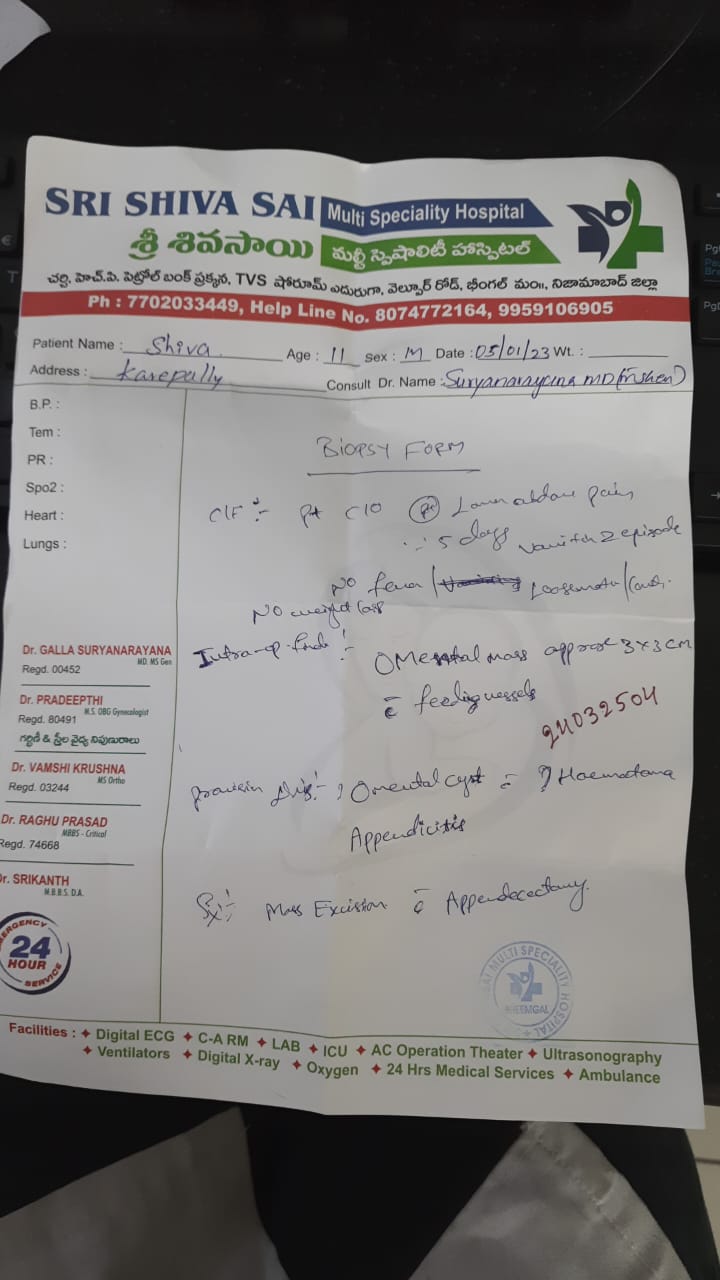 SRI SHIVA SAI Multi Speciality Hospital
శ్రీ శివసాయి మల్టీ స్పెషాలిటీ హాస్పిటల్
చర్చి, హెచ్.పి. పెట్రోల్ బంక్ ప్రక్కన, TVS షోరూమ్ ఎదురుగా, వేల్పూర్ రోడ్, భీంగల్ మం॥, నిజామాబాద్ జిల్లా
Ph : 7702033449, Help Line No. 8074772164, 9959106905
Patient Name : Shiva Age : 11 Sex : M Date : 05/01/23 Wt. :
Address : Karepally Consult Dr. Name : Suryanarayana MD
B.P. :
Tem :
PR :
Spo2 :
Heart :
Lungs :
BIOPSY FORM
pt C/O Lower pain
5 days 2 episode
NO fever /
NO weight loss
Intra-op. : OMental mass approx 3x3 cm
c̄ feeding vessels
24032504
? Omental cyst c̄ ? Haematoma
Appendicitis
Mass Excision c̄ Appendecectomy.
Dr. GALLA SURYANARAYANA
MD. MS Gen
Regd. 00452
Dr. PRADEEPTHI
M.S. OBG Gynecologist
Regd. 80491
గర్భిణీ & స్త్రీల వైద్య నిపుణురాలు
Dr. VAMSHI KRUSHNA
MS Ortho
Regd. 03244
Dr. RAGHU PRASAD
MBBS - Critical
Regd. 74668
Dr. SRIKANTH
M.B.B.S. D.A.
EMERGENCY
24
HOUR
SERVICE
SAI MULTI SPECIALITY HOSPITAL
BHEEMGAL
Facilities : ✦ Digital ECG ✦ C-A RM ✦ LAB ✦ ICU ✦ AC Operation Theater ✦ Ultrasonography
✦ Ventilators ✦ Digital X-ray ✦ Oxygen ✦ 24 Hrs Medical Services ✦ Ambulance